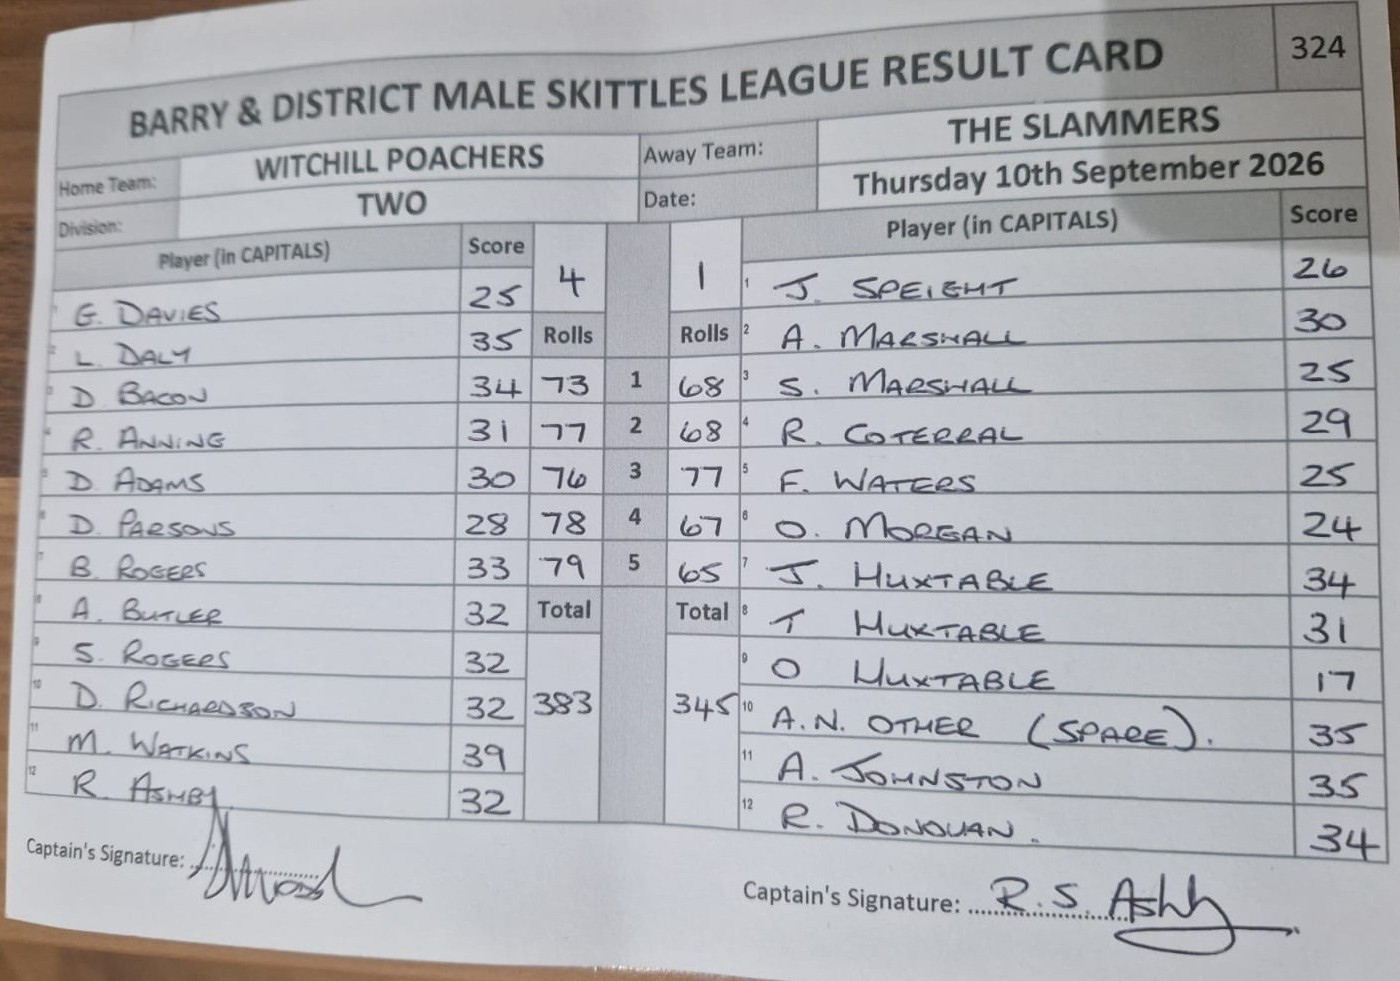 BARRY & DISTRICT MALE SKITTLES LEAGUE RESULT CARD 324
Home Team: WITCHILL POACHERS Away Team: THE SLAMMERS
Division: TWO Date: Thursday 10th September 2026
Player (in CAPITALS) Score 4 1 Player (in CAPITALS) Score
1 G. DAVIES 25 1 J. SPEIGHT 26
2 L. DALY 35 Rolls Rolls 2 A. MARSHALL 30
3 D. BACON 34 73 1 68 3 S. MARSHALL 25
4 R. ANNING 31 77 2 68 4 R. COTERRAL 29
5 D. ADAMS 30 76 3 77 5 F. WATERS 25
6 D. PARSONS 28 78 4 67 6 O. MORGAN 24
7 B. ROGERS 33 79 5 65 7 J. HUXTABLE 34
8 A. BUTLER 32 Total Total 8 T HUXTABLE 31
9 S. ROGERS 32 9 O HUXTABLE 17
10 D. RICHARDSON 32 383 345 10 A.N. OTHER (SPARE). 35
11 M. WATKINS 39 11 A. JOHNSTON 35
12 R. ASHBY 32 12 R. DONOVAN. 34
Captain's Signature: Captain's Signature: R.S. Ashby